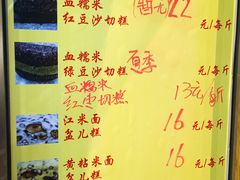 血糯米
红豆沙切糕 22 元/每斤
血糯米 夏季
绿豆沙切糕 元/每斤
血糯米
红枣切糕 13元/斤
江米面 16
盆儿糕 元/每斤
黄粘米面 16
盆儿糕 元/每斤